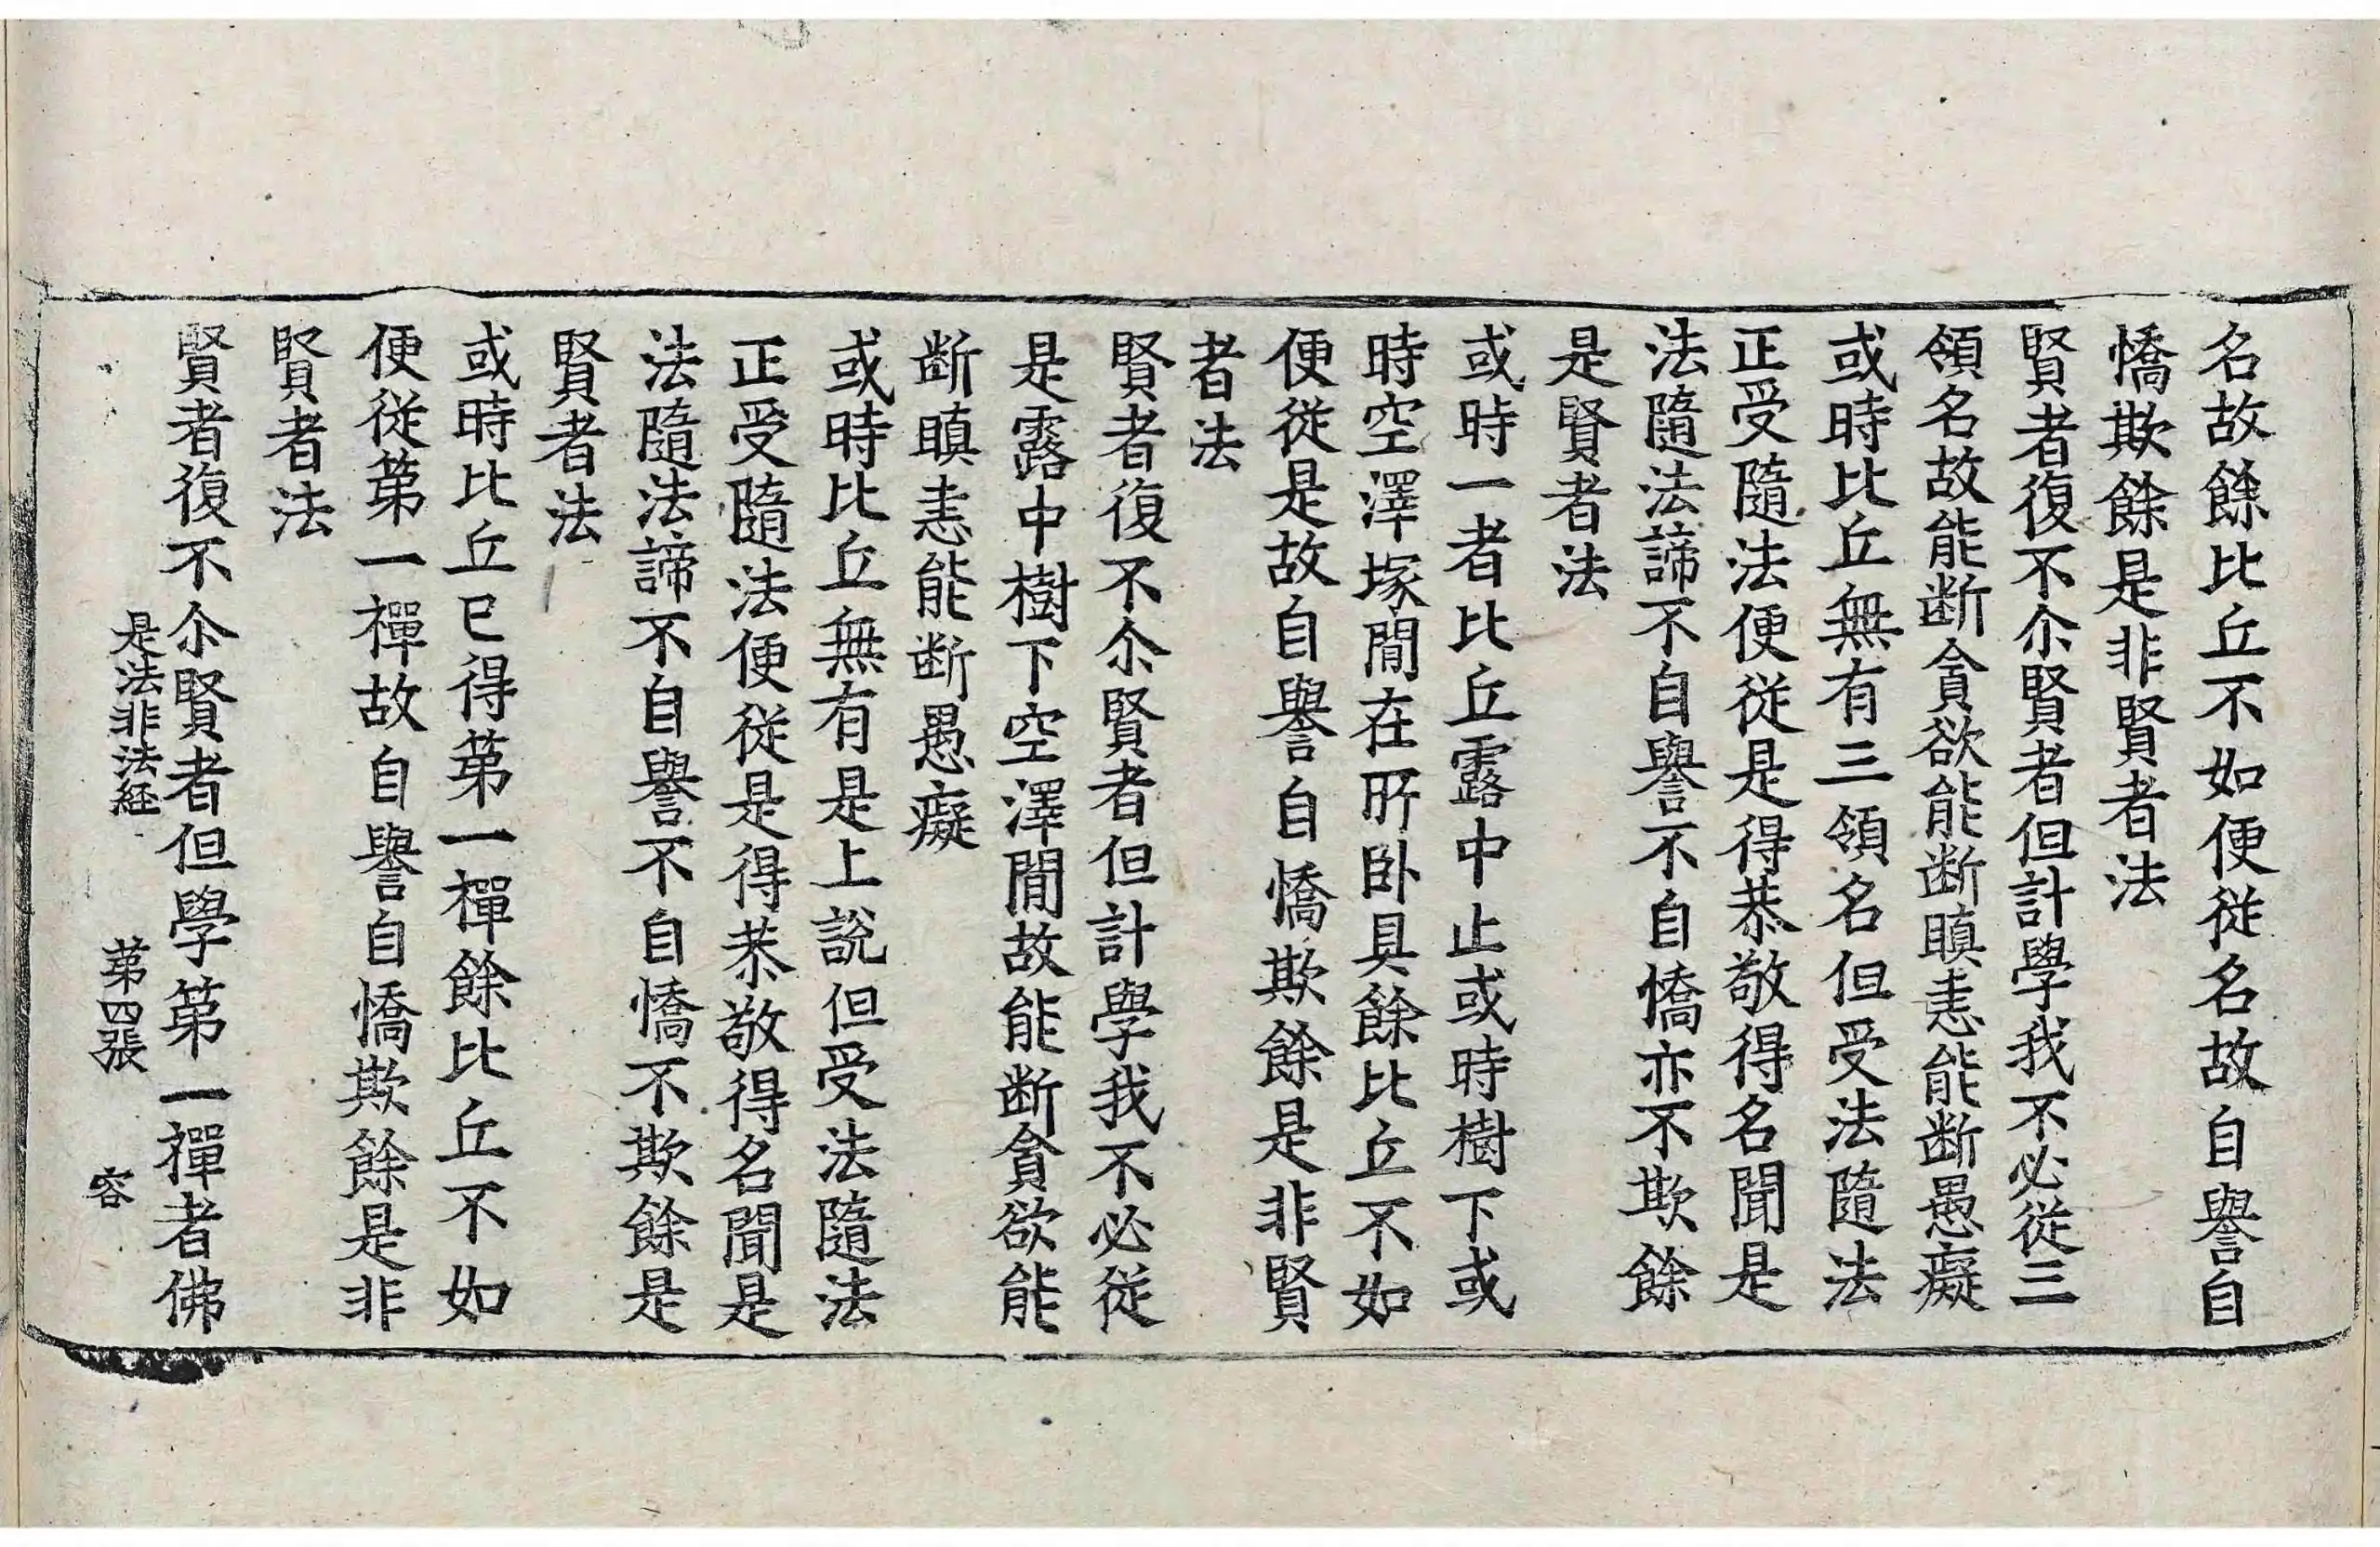 名故餘比丘不如便從名故自譽自
憍欺餘是非賢者法
賢者復不尒賢者但計學我不必從三
領名故能断貪欲能断瞋恚能断愚癡
或時比丘無有三領名但受法隨法
正受隨法便從是得恭敬得名聞是
法隨法諦不自譽不自憍亦不欺餘
是賢者法
或時一者比丘露中止或時樹下或
時空澤塚閒在所卧具餘比丘不如
便從是故自譽自憍欺餘是非賢
者法
賢者復不尒賢者但計學我不必從
是露中樹下空澤閒故能断貪欲能
断瞋恚能断愚癡
或時比丘無有是上說但受法隨法
正受隨法便從是得恭敬得名聞是
法隨法諦不自譽不自憍不欺餘是
賢者法
或時比丘已得苐一禪餘比丘不如
便從苐一禪故自譽自憍欺餘是非
賢者法
賢者復不尒賢者但學苐一禪者佛
是法非法経 苐四張 容